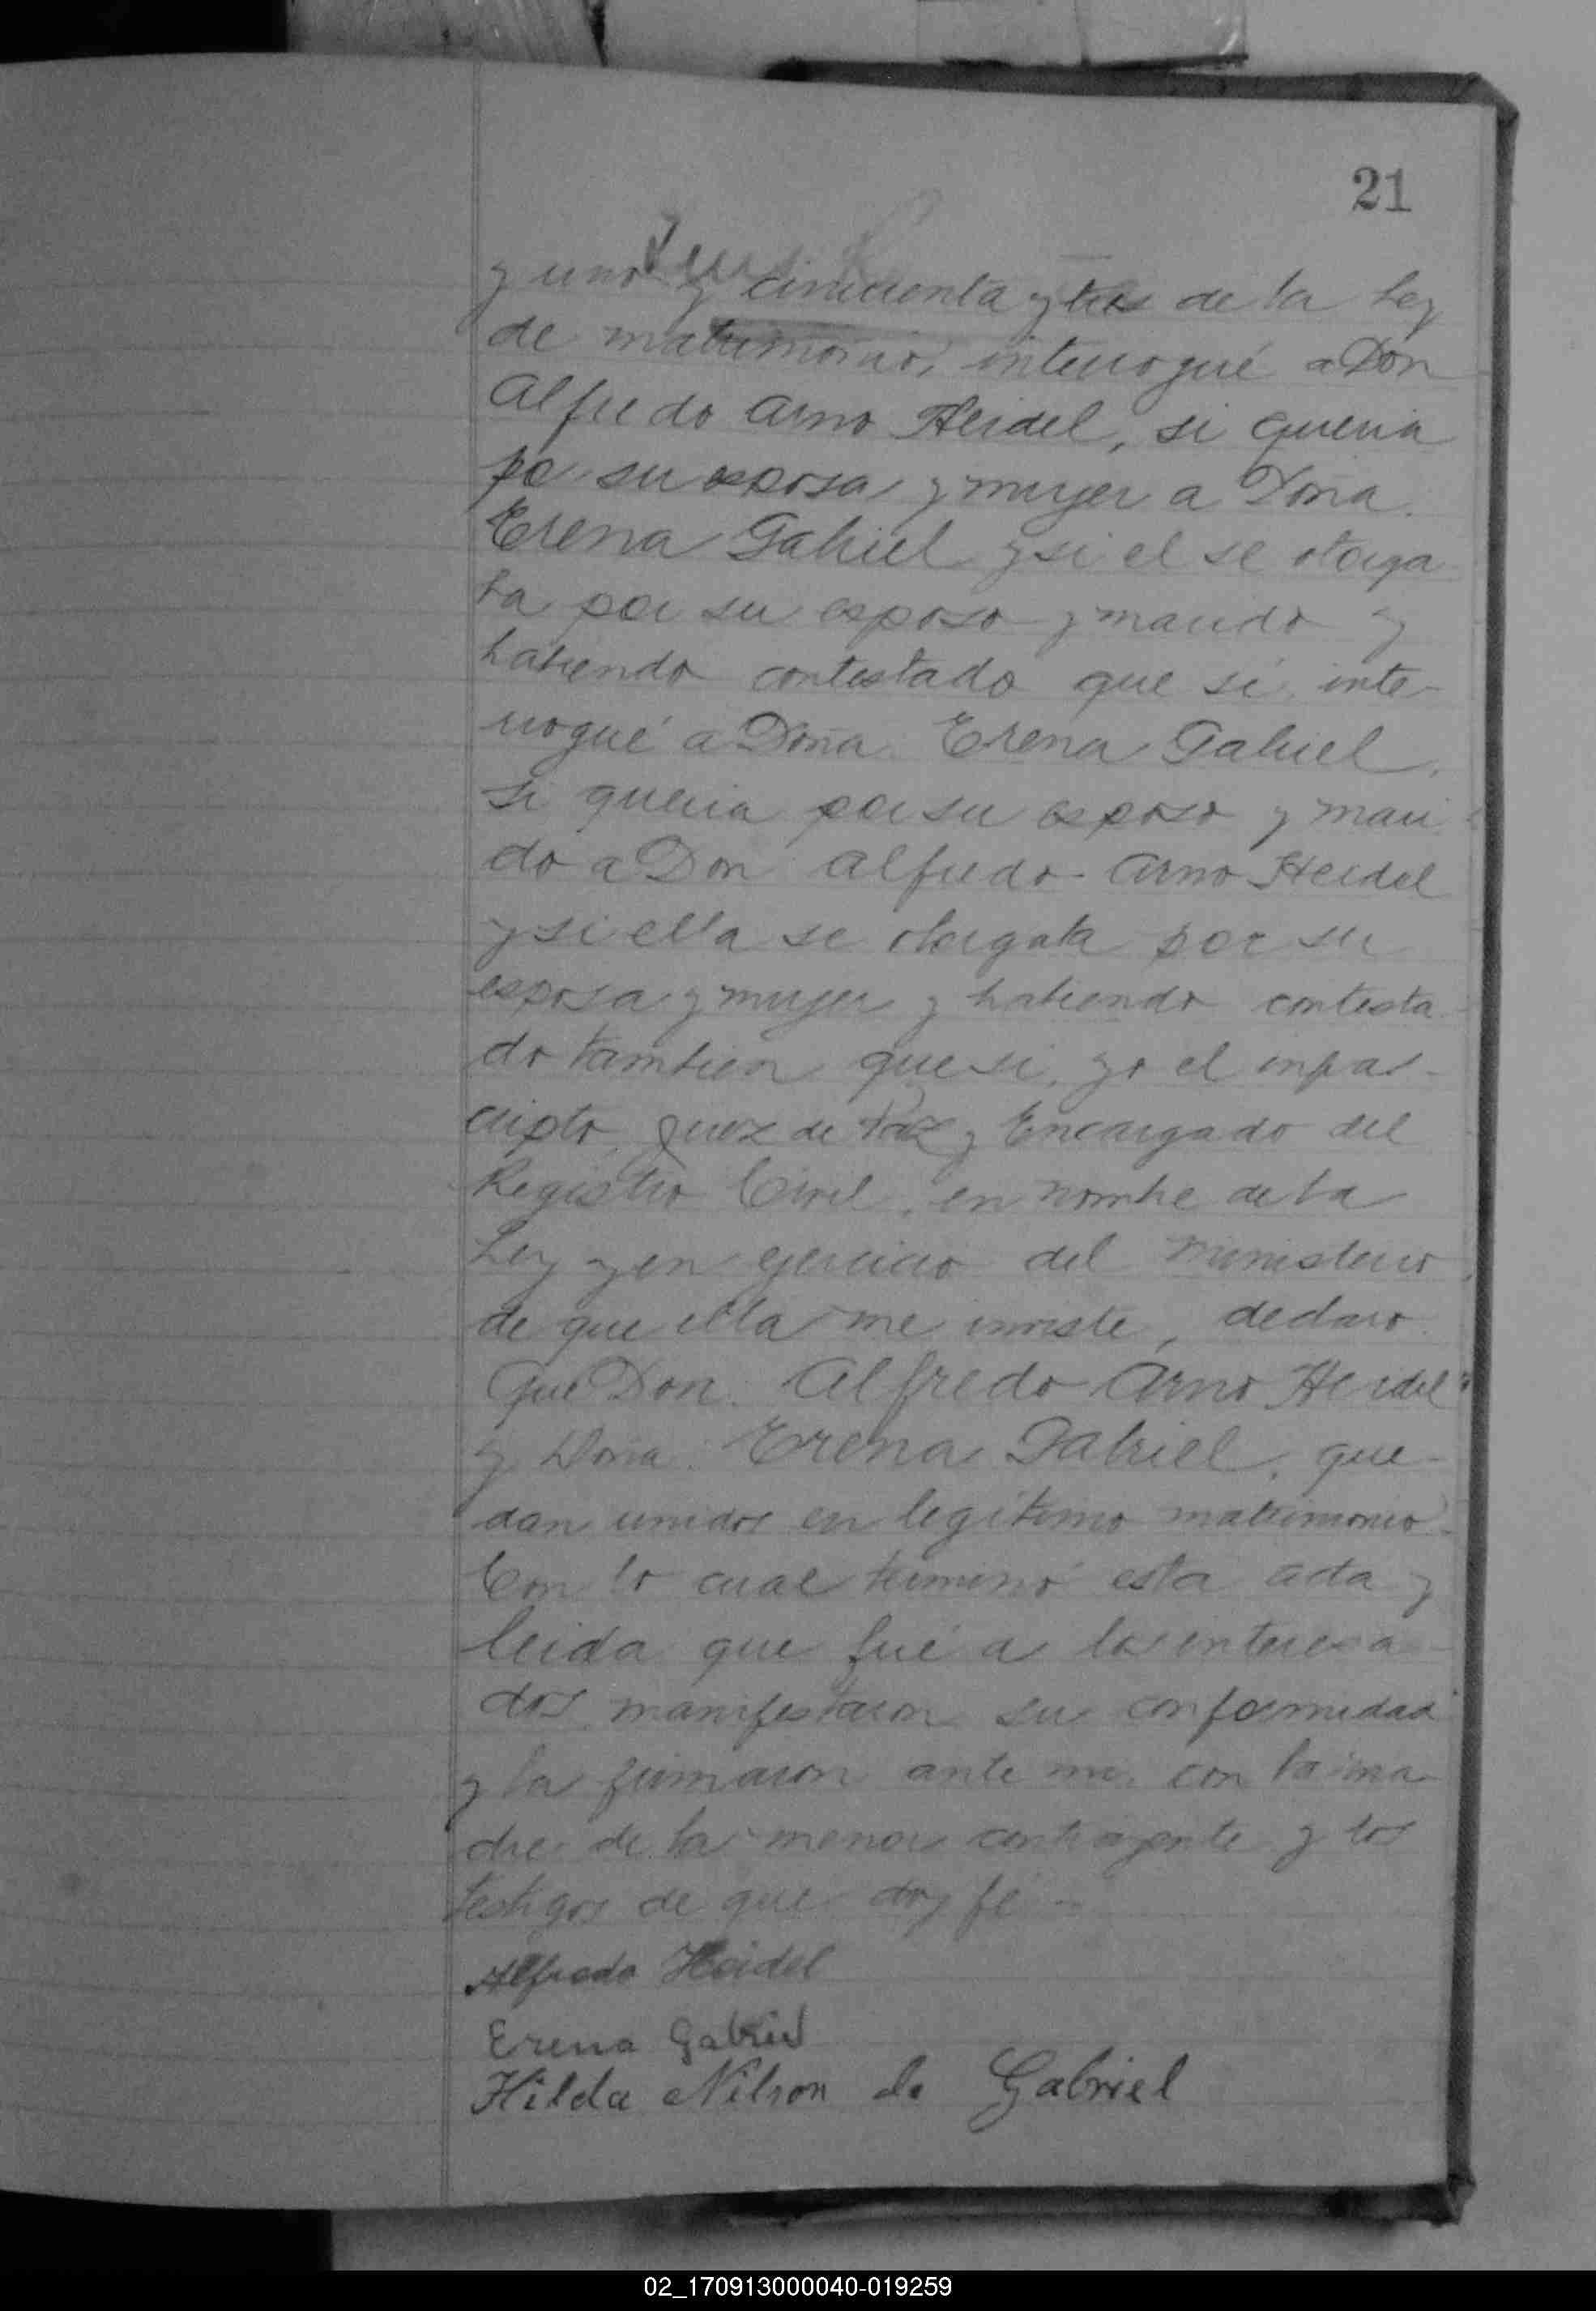 21
y uno y cincuenta y tres de la Ley
de matrimonio, interrogué a Don
Alfredo Arno Heidel, si queria
por su esposa y mujer a Doña
Erena Gabriel y si el se otorga
ba por su esposo y marido y
habiendo contestado que si, inte-
rrogué a Doña Erena Gabriel,
si queria por su esposo y mari
do a Don Alfredo Arno Heidel
y si ella se otorgaba por su
esposa y mujer y habiendo contesta
do tambien que si, yo el infras-
cripto, Juez de Paz y Encargado del
Registro Civil, en nombre de la
Ley y en ejercicio del ministerio
de que ella me inviste, declaro
que Don Alfredo Arno Heidel
y Doña Erena Gabriel, que-
dan unidos en legitimo matrimonio.
Con lo cual terminó esta acta y
leida que fué a los interesa-
dos manifestaron su conformidad
y la firmaron ante mi con la ma
dre de la menor contrayente y los
testigos de que doy fé -
Alfredo Heidel
Erena Gabriel
Hilda Nilson de Gabriel
02_170913000040-019259